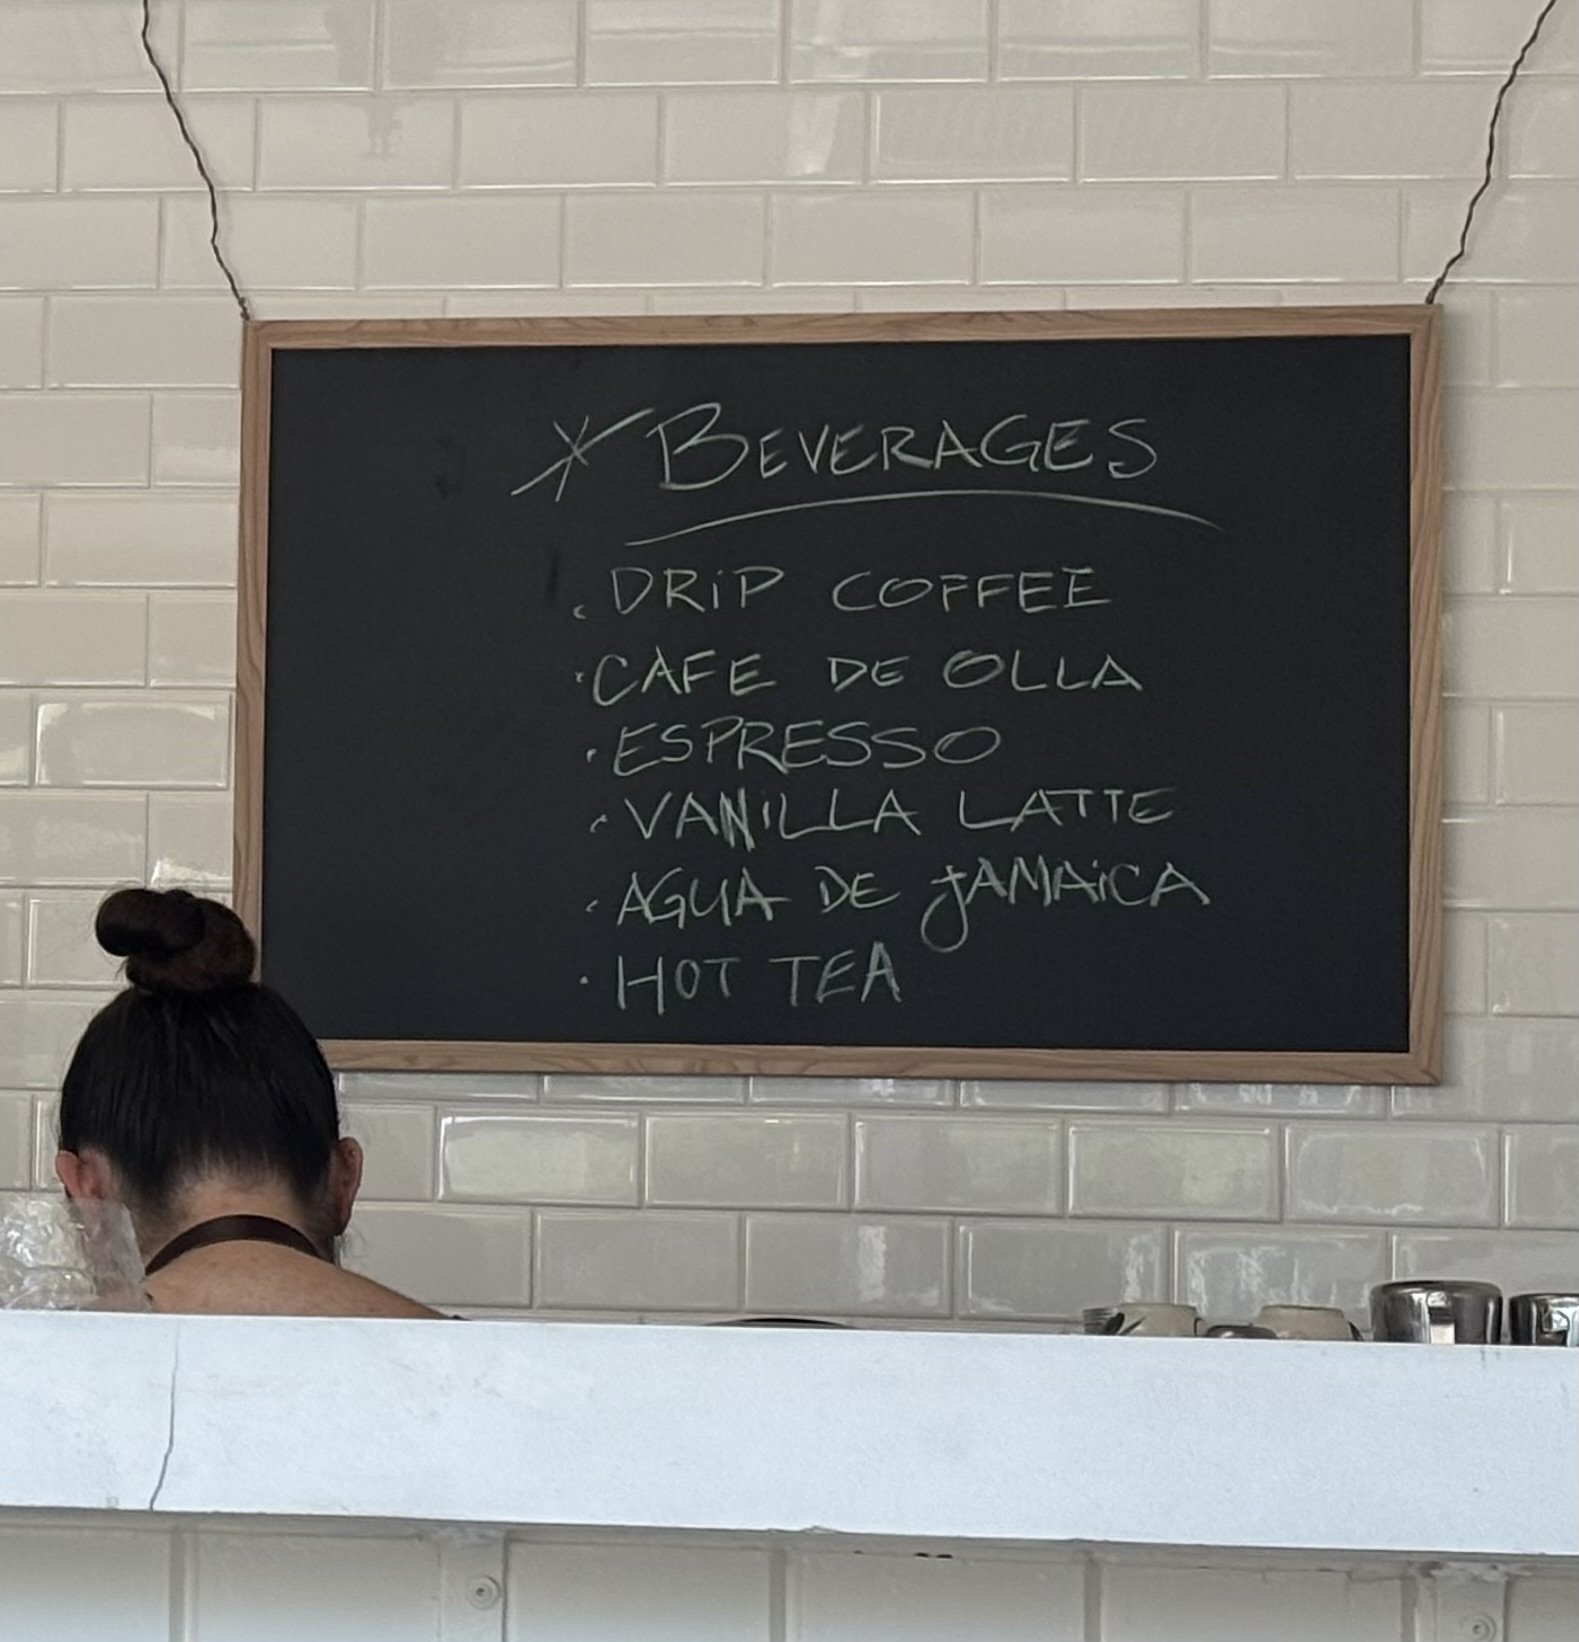 * BEVERAGES
· DRiP COFFEE
· CAFE DE OLLA
· ESPRESSO
· VANiLLA LATTE
· AGUA DE JAMAiCA
· HOT TEA